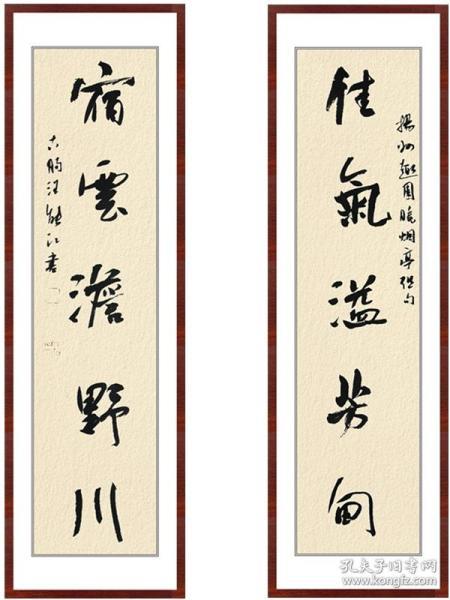 佳氣溢芳甸
揚州趣園曉烟亭聯句
宿雲澹野川
古朐汪能江書
孔夫子旧书网
www.kongfz.com